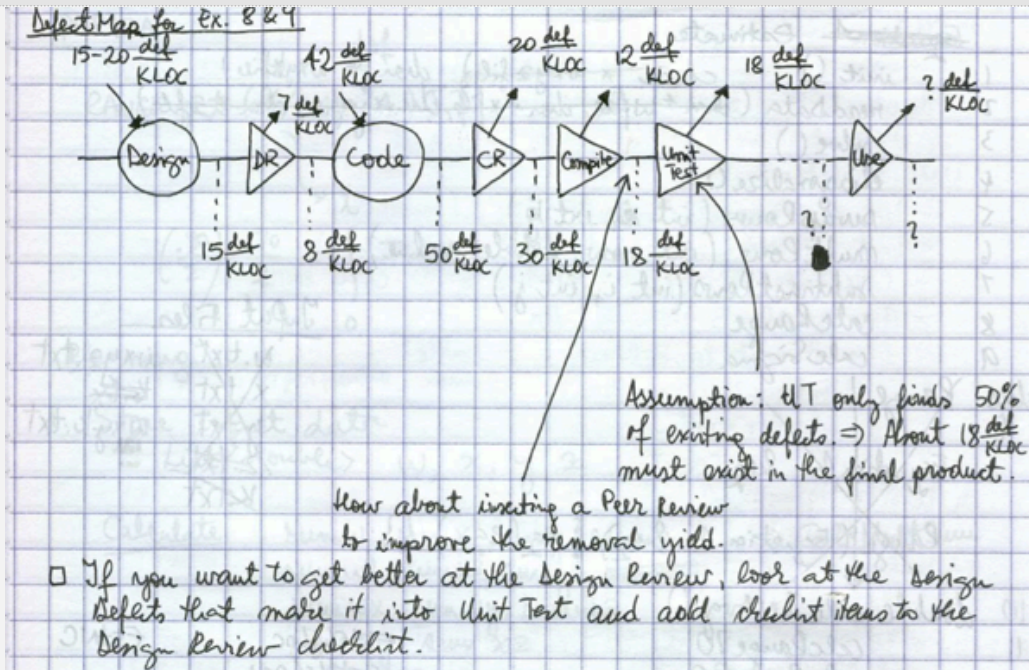 Defect Map for Ex. 8 & 9
15-20 def/KLOC
7 def/KLOC
42 def/KLOC
20 def/KLOC
12 def/KLOC
18 def/KLOC
? def/KLOC
Design
DR
Code
CR
Compile
Unit Test
Use
15 def/KLOC
8 def/KLOC
50 def/KLOC
30 def/KLOC
18 def/KLOC
?
?
Assumption: UT only finds 50%
of existing defects. ⇒ About 18 def/KLOC
must exist in the final product.
How about inserting a Peer Review
to improve the removal yield.
□ If you want to get better at the Design Review, look at the Design
Defects that make it into Unit Test and add checklist items to the
Design Review checklist.